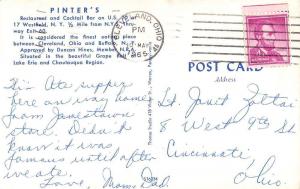 PINTER'S
Restaurant and Cocktail Bar on U.S.
17 Westfield, N. Y. ½ mile from N.Y.
way Exit 60.
It is considered the finest eating place
between Cleveland, Ohio and Buffalo, N.Y.
Approved by Duncan Hines,
Situated in the beautiful Grape
Lake Erie and Chautauqua Region.
CLEVELAND, OHIO
PM
MAY
1965
POST CARD
Address
Hi Sis Ate supper
here on way home
from Jamestown
store. Didn't
know it was
famous until after
we ate.
Love, Mom & Dad
Lt. Janet Zoltai
8 West 9th St
Cincinnati
Ohio.